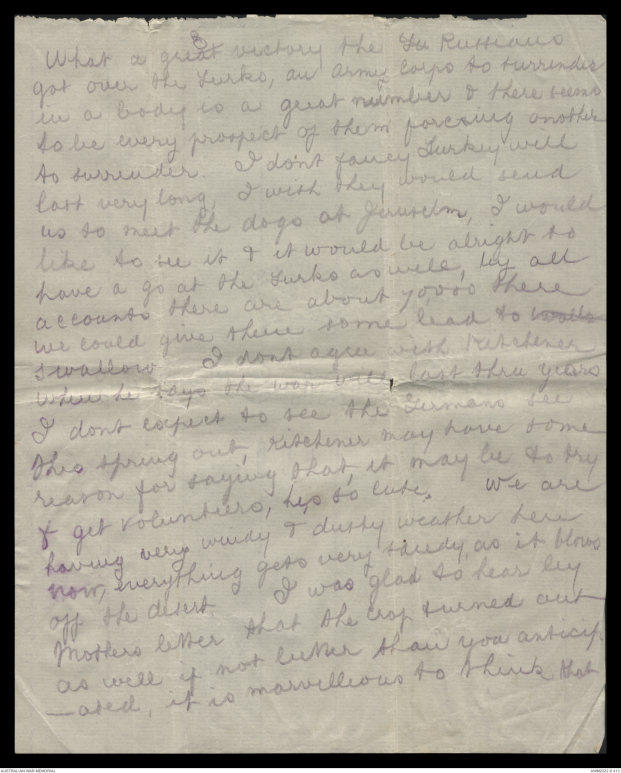 3
What a great victory the Russians
got over the Turks, an army corps to surrender
in a body is a great number & there seems
to be every prospect of them forcing another
to surrender. I don't fancy Turkey will
last very long, I wish they would send
us to meet the dogs at Jeruselm, I would
like to see it & it would be alright to
have a go at the Turks as well, by all
accounts there are about 70,000 there
we could give them some lead to
swallow. I dont agree with Kitchener
when he says the war will last three years
I dont expect to see the Germans see
this spring out, Kitchener may have some
reason for saying that, it may be to try
& get volunteers, he's so cute. We are
having very windy & dusty weather here
now, everything gets very sandy, as it blows
off the desert. I was glad to hear by
Mothers letter that the crop turned out
as well if not better than you anticip-
-ated, it is marvelleous to think that
AUSTRALIAN WAR MEMORIAL